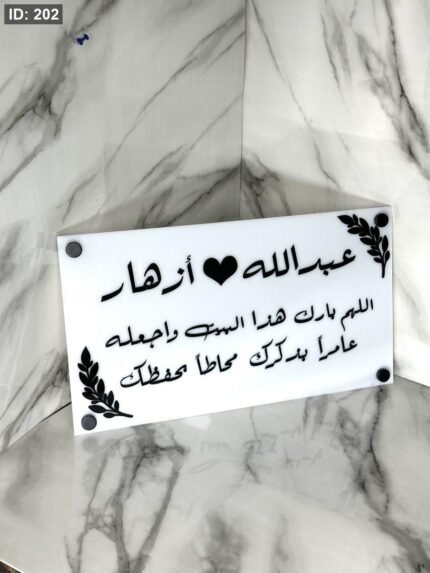 ID: 202
عبدالله ♥ أزهار
اللهم بارك هذا البيت واجعله
عامراً بذكرك محاطاً بحفظك